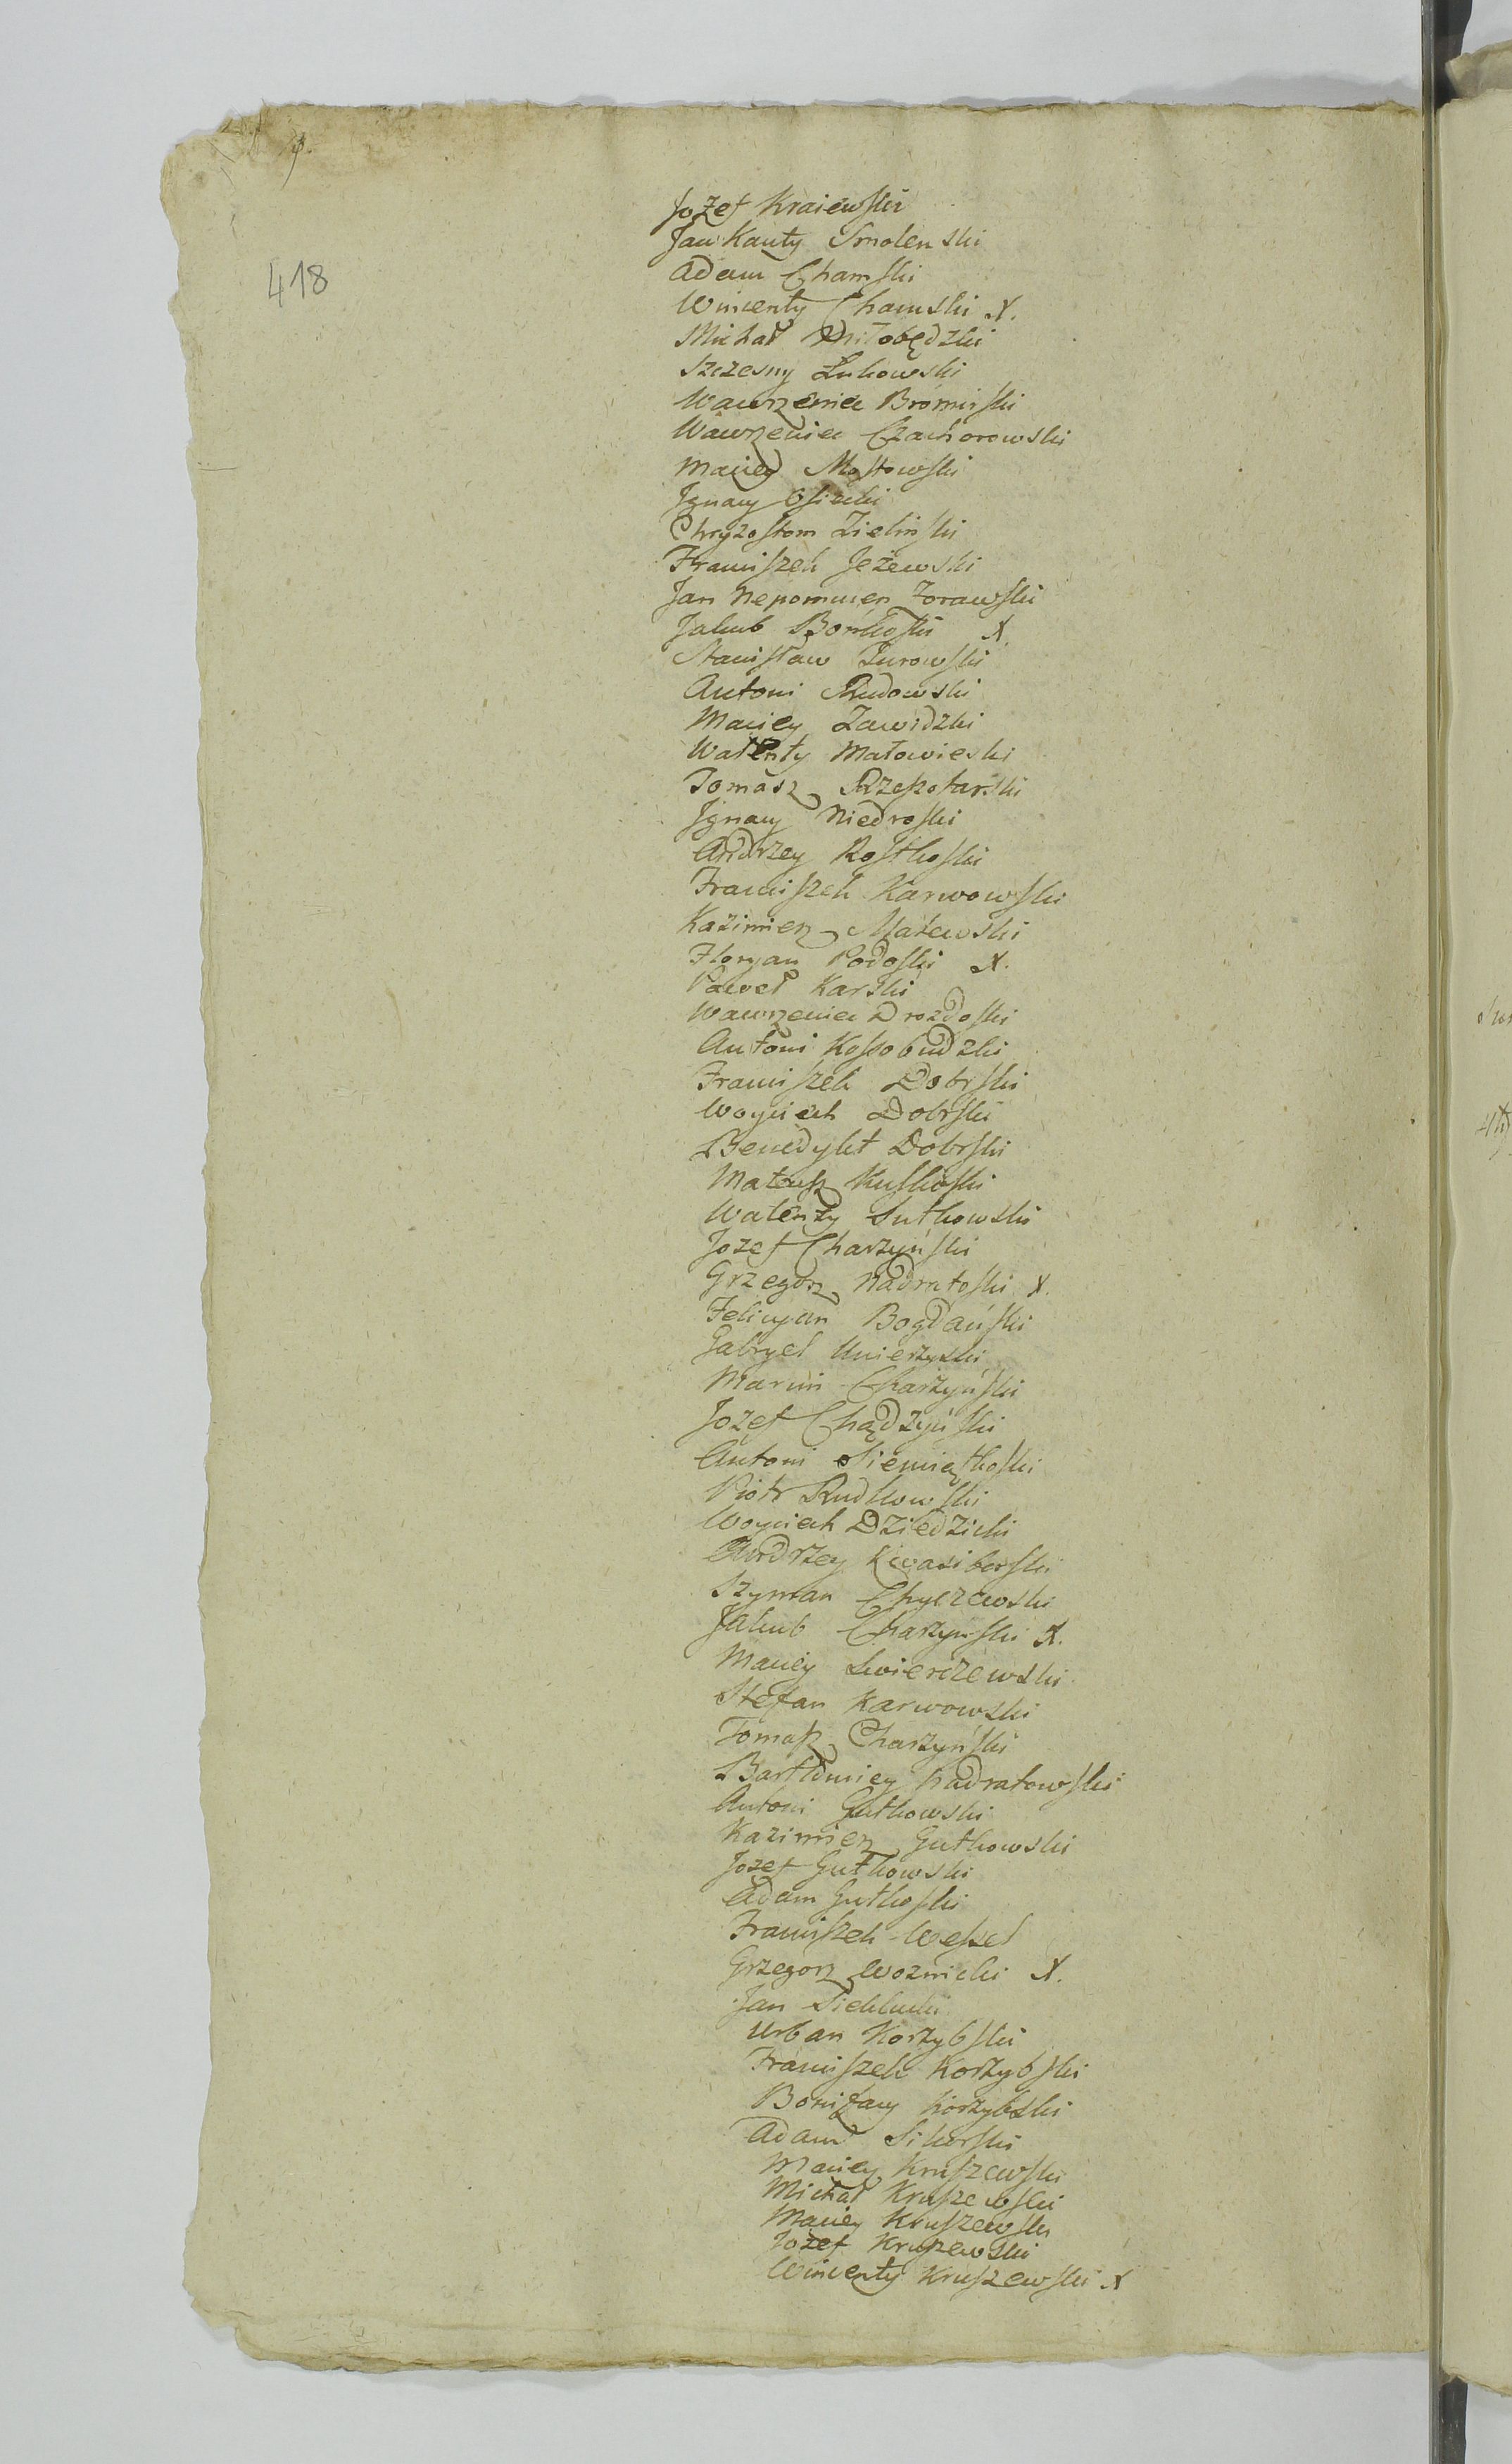 418
Jozef Kraiewski
Jan Kanty Smolenski
Adam Chamski
Wincenty Chamski X.
Michał Miłobędzki
Szczesny Łukowski
Wawrzeniec Bromirski
Wawrzeniec Czachorowski
Maciey Mostowski
Ignacy Osiecki
Chryzostom Zieliński
Franciszek Jeżewski
Jan Nepomucen Zorawski
Jakub Bońkoski X
Stanisław Żurowski
Antoni Rudowski
Maciey Zawidzki
Walenty Małowieski
Tomasz Rzeszotarski
Ignacy Niedroski
Andrzey Rostkoski
Franciszek Karwowski
Kazimierz Małewski
Floryan Podoski X.
Paweł Karski
Wawrzeniec Drozdoski
Antoni Kossobudzki
Franciszek Dobrski
Woyciech Dobrski
Benedykt Dobrski
Mateusz Kuskoski
Walenty Sutkowski
Jozef Charzyński
Grzegorz Nadratoski X.
Felicyan Bogdański
Gabryel Unierzyski
Marcin Charzyński
Jozef Chądzyński
Antoni Siemiątkoski
Piotr Rudkowski
Woyciech Dziedzicki
Andrzey Kwasiborski
Szyman Chyczewski
Jakub Charzynski X.
Maciey Swierczewski
Stefan Karwowski
Tomasz Charzyński
Bartłomiey Nadratowski
Antoni Gutkowski
Kazimierz Gutkowski
Jozef Gutkowski
Adam Gutkoski
Franciszek Wessel
Grzegorz Woznicki X.
Jan Siekłucki
Urban Korzybski
Franciszek Korzybski
Bonifacy Korzybski
Adam Sikorski
Maciey Kruszewski
Michał Kruszewski
Maciey Kruszewski
Jozef Kruszewski
Wincenty Kruszewski X